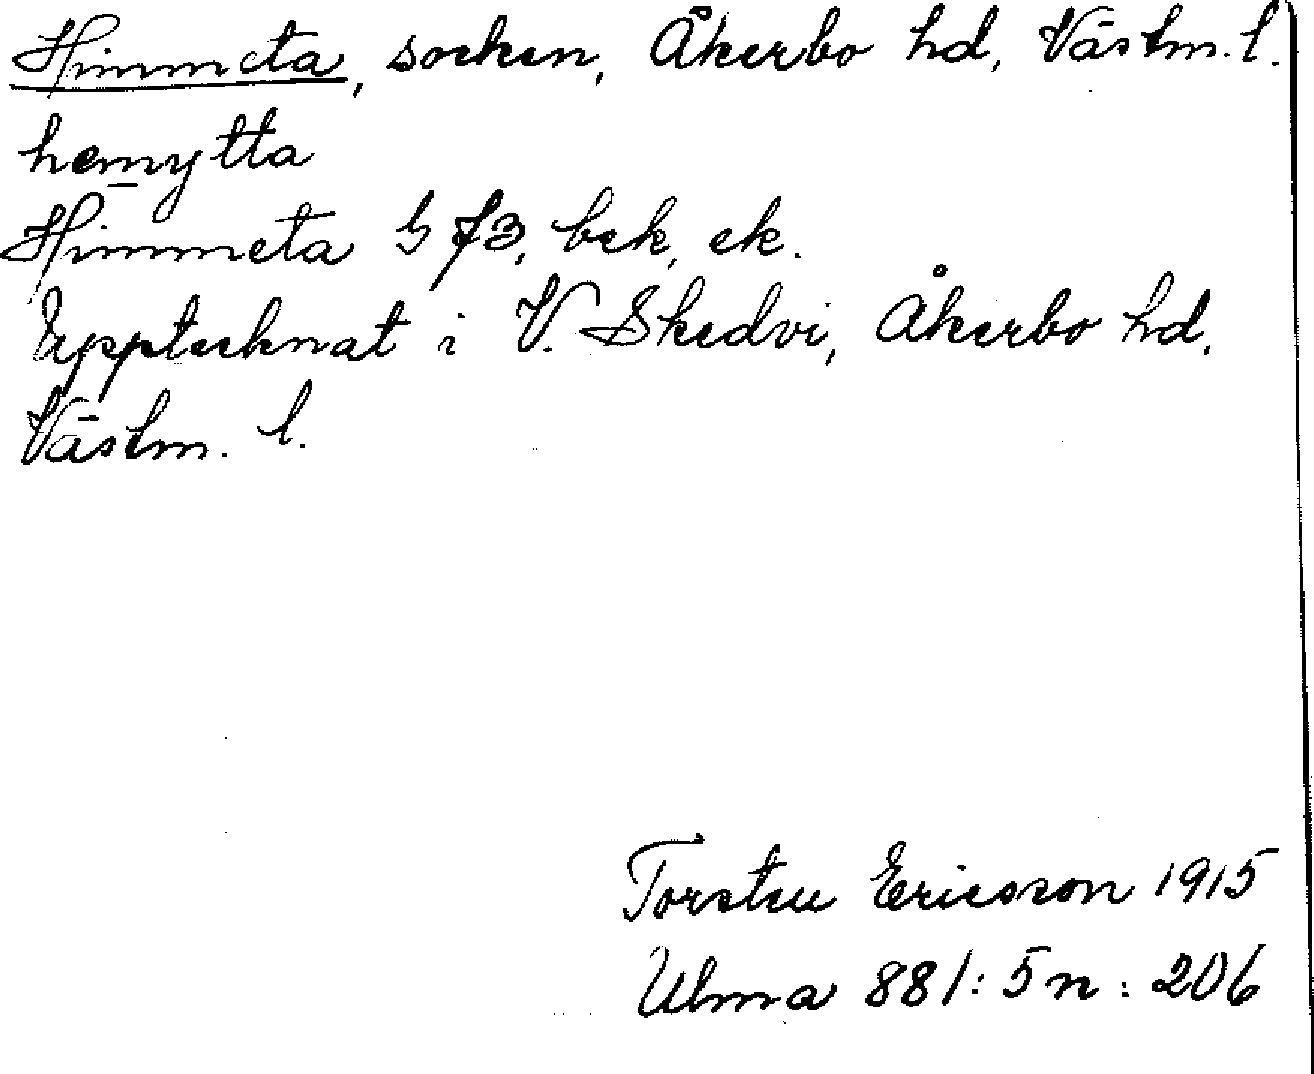 Himmeta, socken, Åkerbo hd, Västm. l.
hemytta
Himmeta G f3, bek, ek.
Upptecknat i V. Skedvi, Åkerbo hd,
Västm. l.
Torsten Ericsson 1915
Ulma 881:5 n: 206